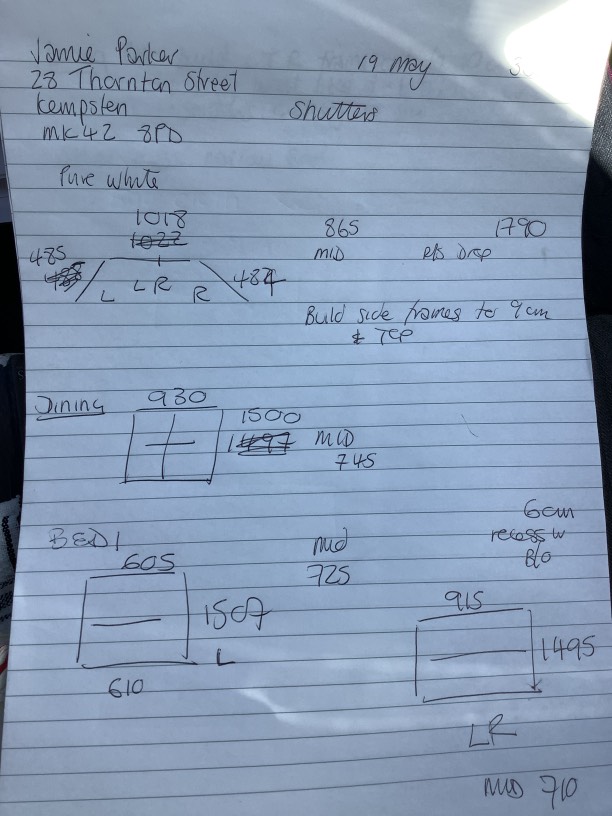 Jamie Parker
19 May
28 Thornton Street
Kempsten
Shutters
MK42 8PD
Pure White
1018
865
1790
485
MID
R/S Drop
L LR R
484
Build side frames to 9cm
& TOP
Dining
930
1500
1497
MID
745
BED1
605
Mid
725
6cm
recess w
B/O
1507
L
610
915
1495
LR
MID 710